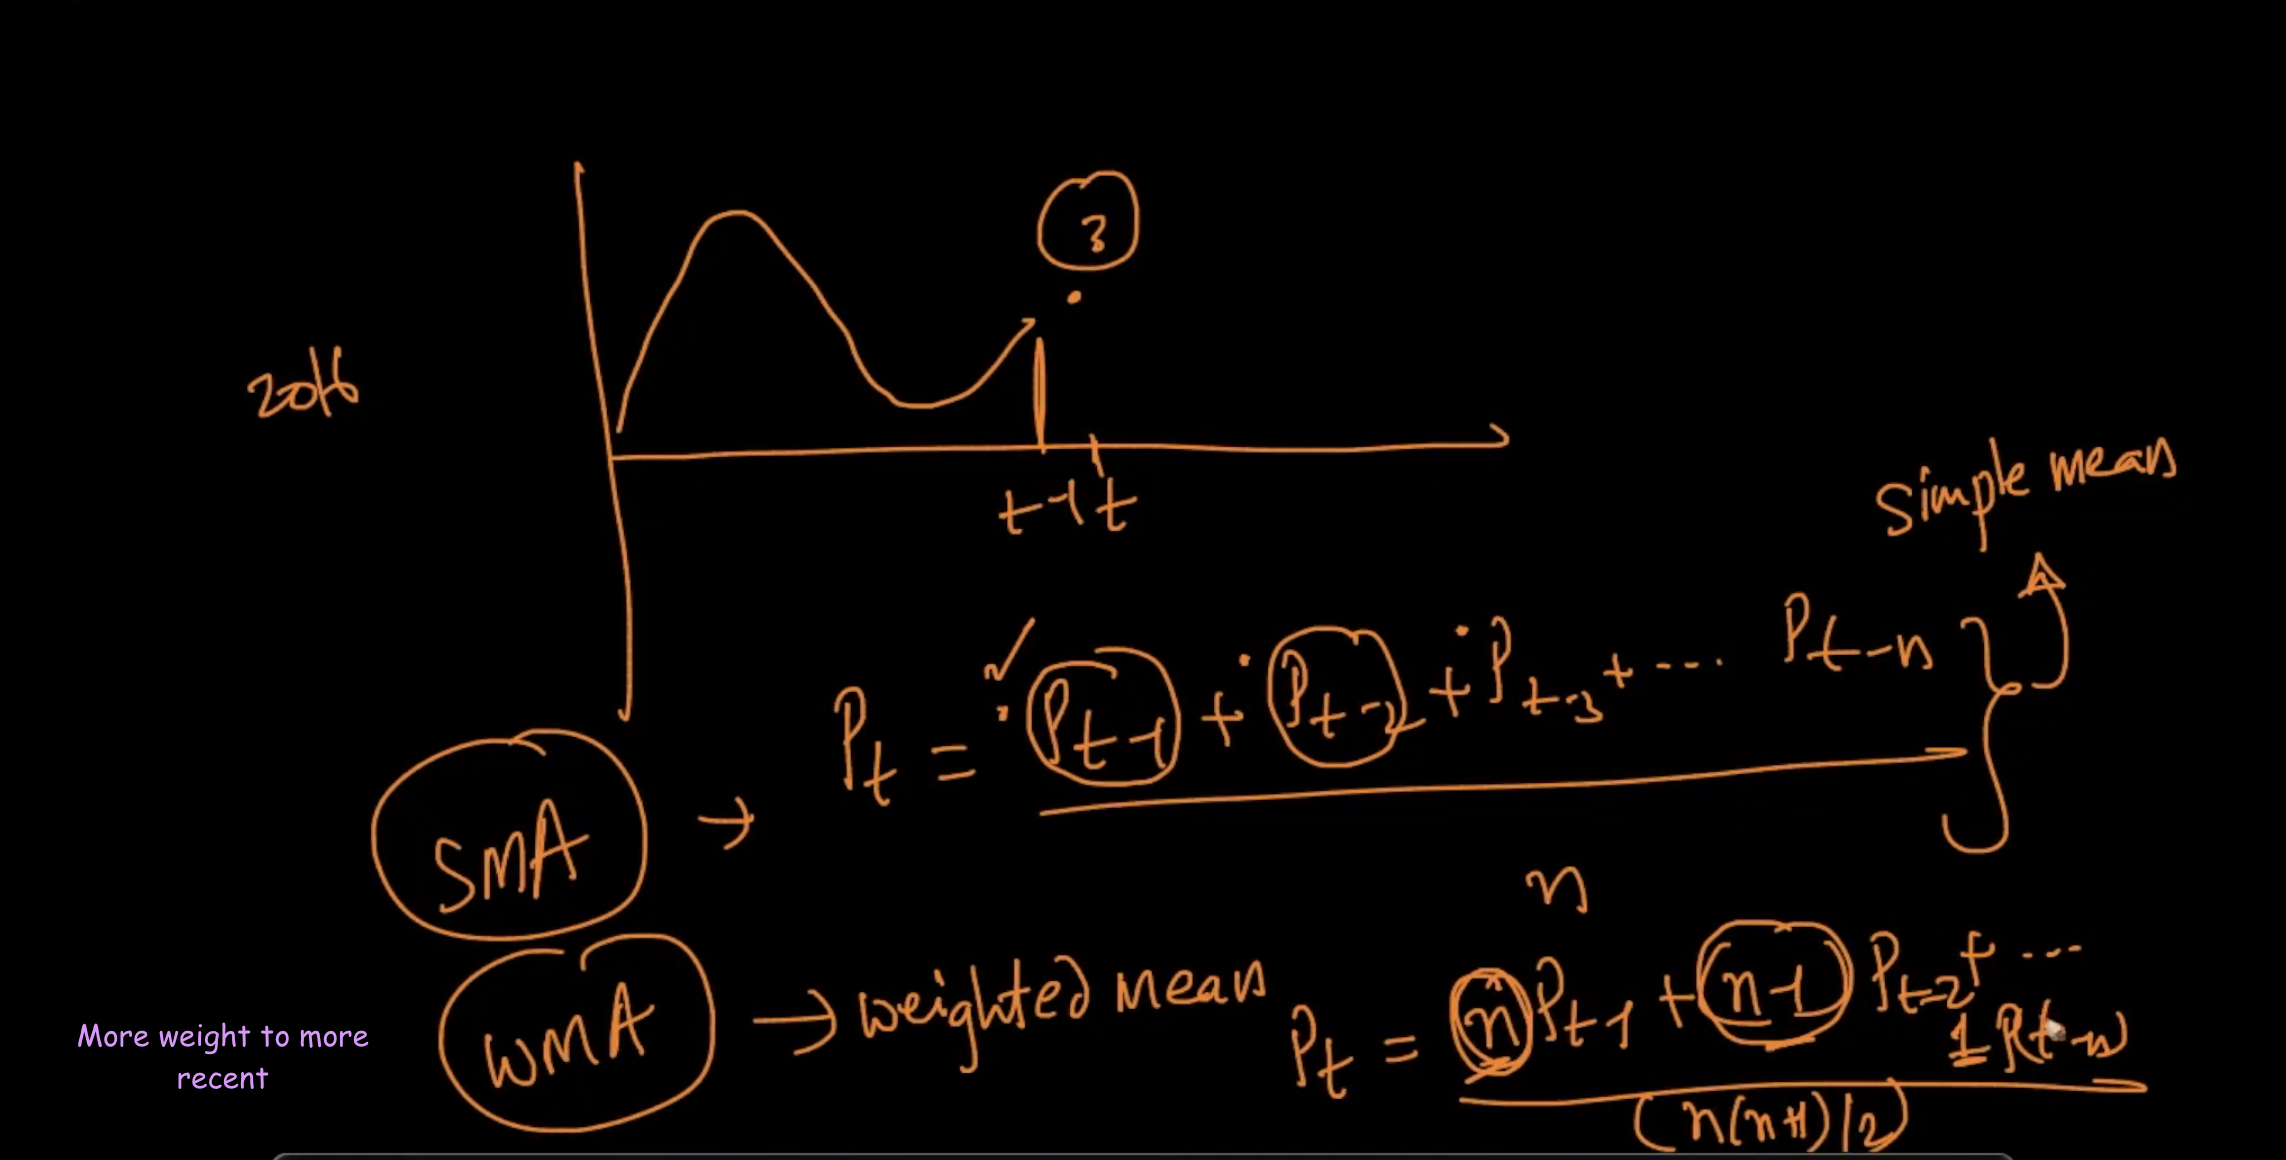 ?
2016
t-1 t
simple mean
SMA → Pt = Pt-1 + Pt-2 + Pt-3 + --- Pt-n
n
WMA → weighted mean Pt = n Pt-1 + (n-1) Pt-2 + --- 1 P(t-n)
(n(n+1)/2)
More weight to more
recent